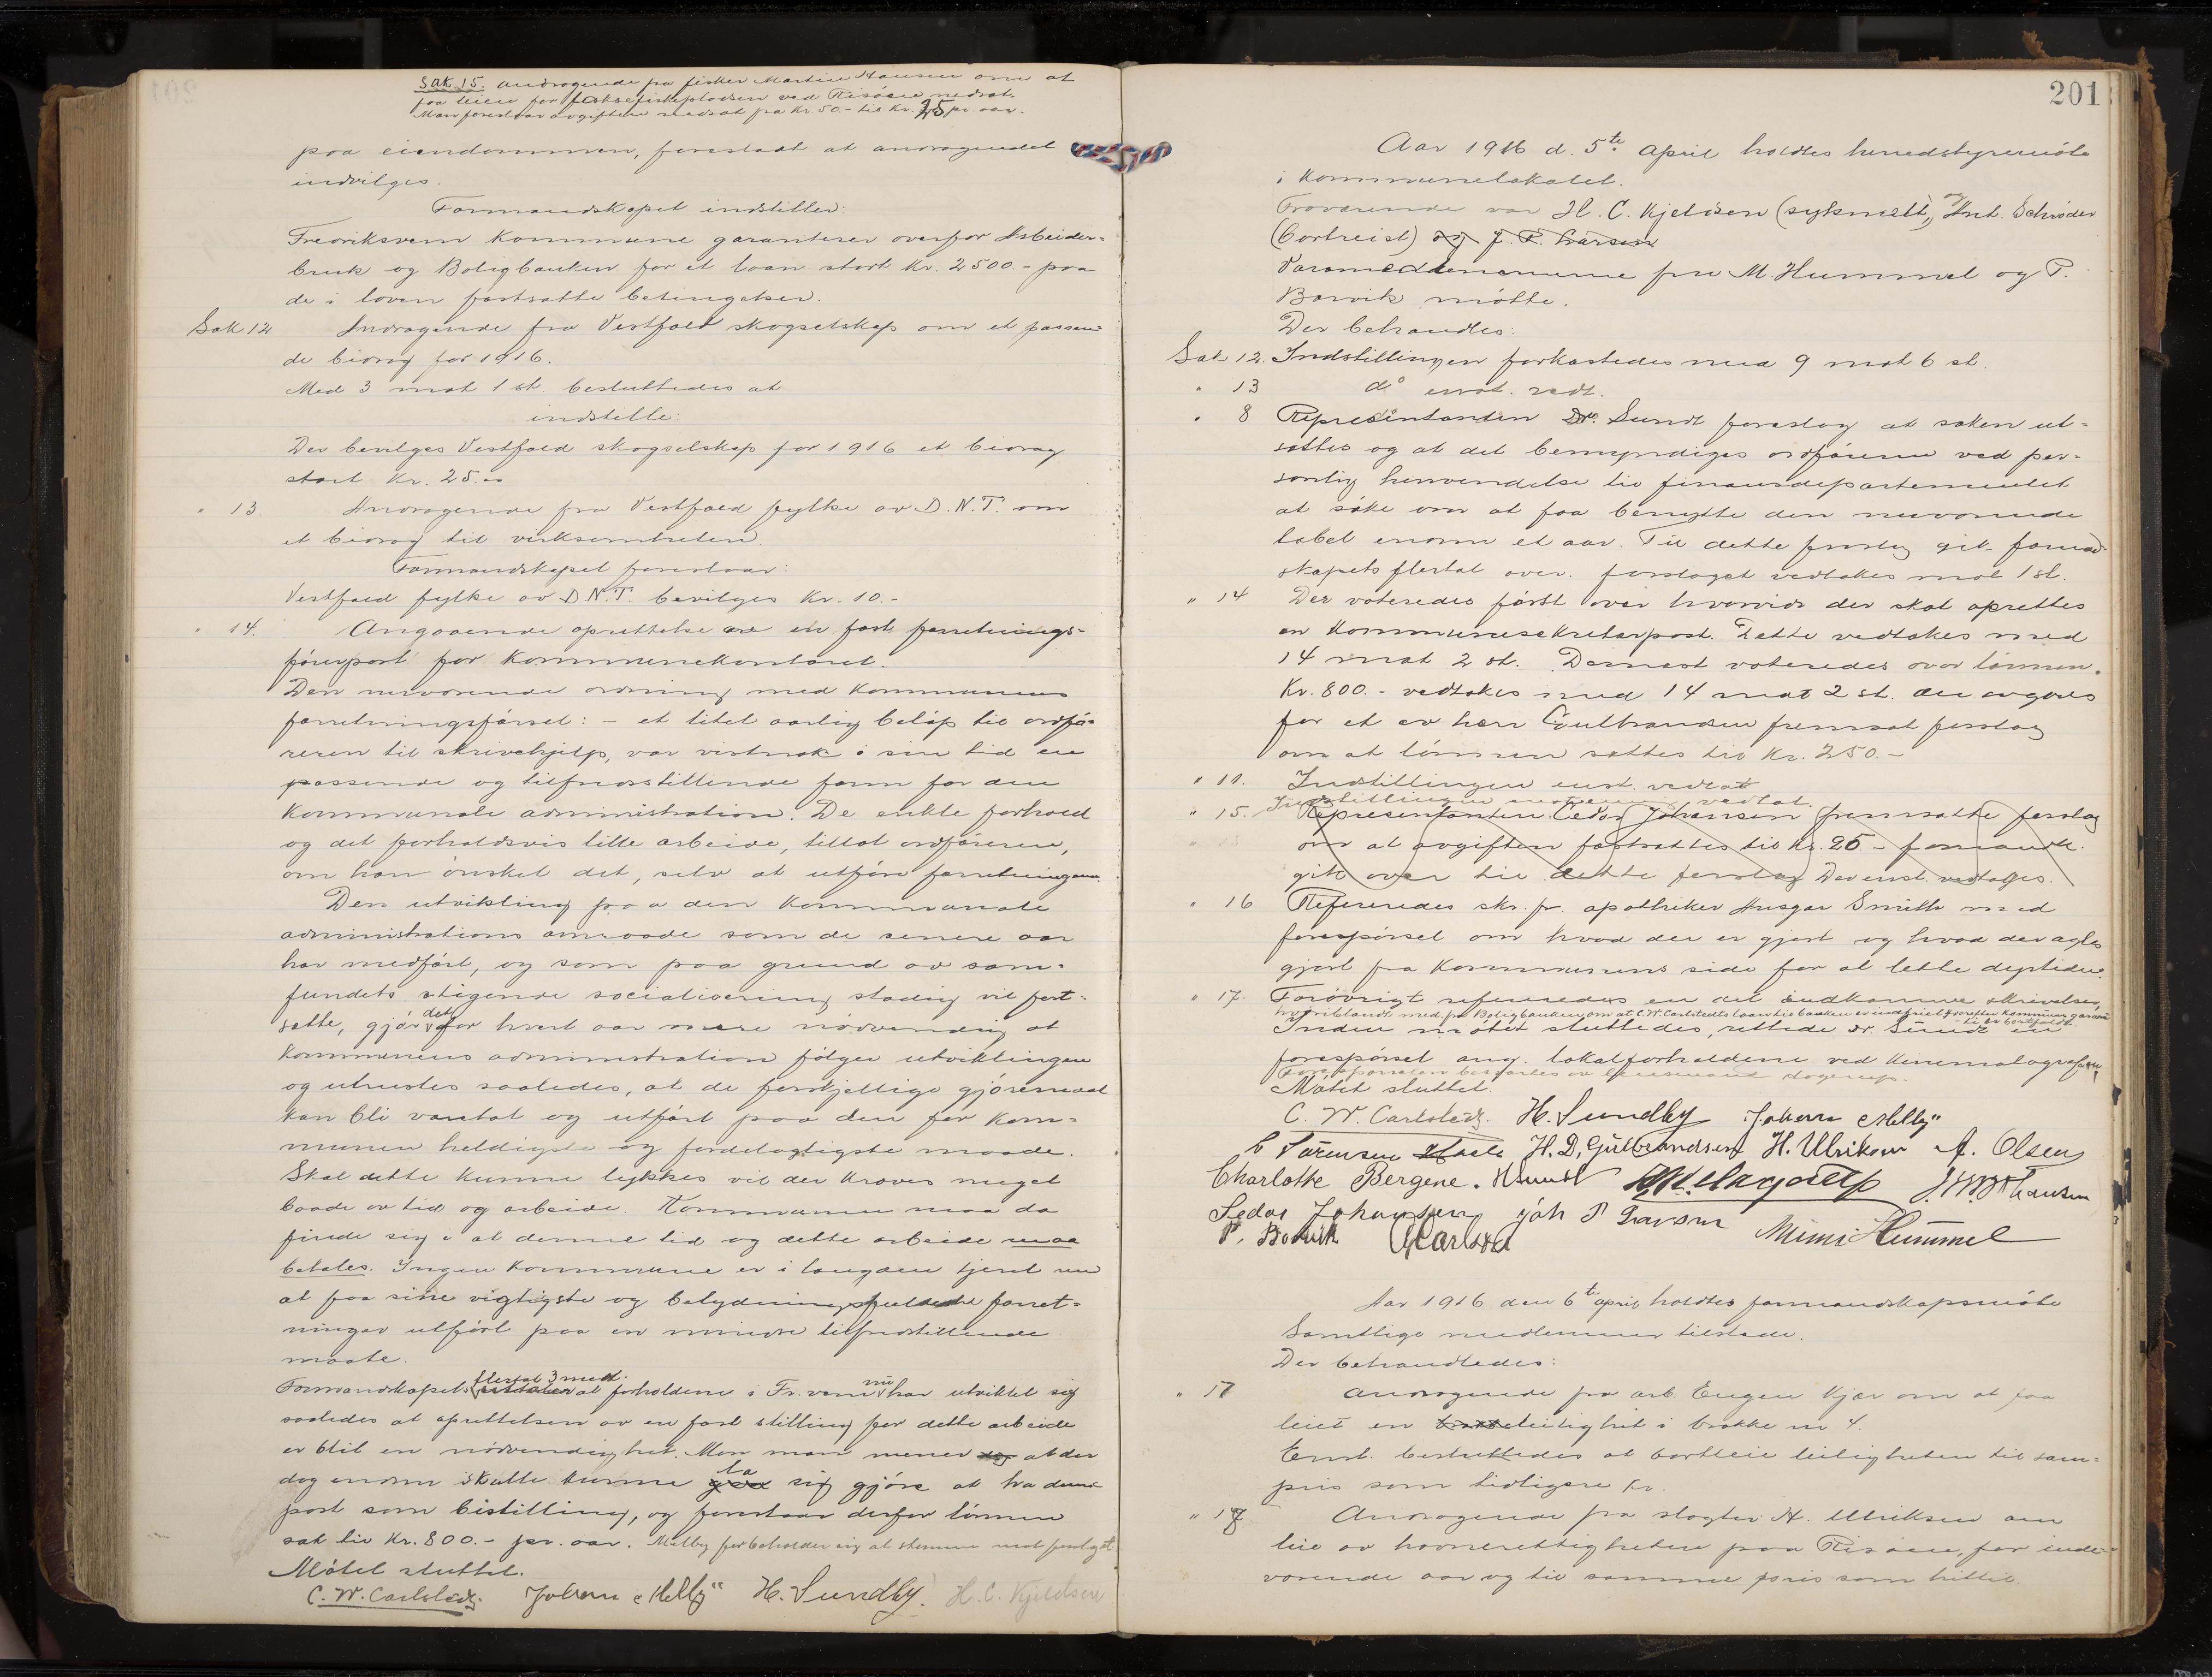 Sak 15. Andragende fra fisker Martin Hansen om at
faa leien for laksefiskepladsen ved Risøen nedsat.
Man foreslaar avgiften nedsat fra Kr. 50.- til Kr. 25 pr. aar.
paa eiendommen, forestaat at andragendet
indvilges.
Formandskapet indstiller:
Fredriksvern kommune garanterer overfor Arbeider-
bruk og Boligbanken for et laan stort Kr. 2500.- paa
de i loven fastsatte betingelser.
Sak 12 Andragende fra Vestfold skogselskap om et passen-
de bidrag for 1916.
Med 3 mot 1 st. besluttedes at
indstille:
Der bevilges Vestfold skogselskap for 1916 et bidrag
stort Kr. 25.-
" 13. Andragende fra Vestfold fylke av D.N.T. om
et bidrag til virksomheten.
Formandskapet foreslaar:
Vestfold fylke av D.N.T. bevilges Kr. 10.-
" 14. Angaaende oprettelse av en fast forretnings-
førerpost for kommunekontoret.
Den nuværende ordning med kommunens
forretningsførsel: - et litet aarlig beløp til ordfø-
reren til skrivehjelp, var vistnok i sin tid en
passende og tilfredsstillende form for den
kommunale administration. De enkle forhold
og det forholdsvis lille arbeide, tillot ordføreren,
om han ønsket det, selv at utføre forretningene.
Den utvikling paa den kommunale
administrations omraade som de senere aar
har medført, og som paa grund av sam-
fundets stigende socialisering stadig vil fort-
sætte, gjør det for hvert aar mere nødvendig at
kommunens administration følger utviklingen
og utrustes saaledes, at de forskjellige gjøremaal
kan bli varetat og utført paa den for kom-
munen heldigste og fordelagtigste maade.
Skal dette kunne lykkes vil der kræves meget
baade av tid og arbeide. Kommunen maa da
finde sig i at denne tid og dette arbeide maa
betales. Ingen kommune er i længden tjent med
at faa sine vigtigste og betydningsfuldeste forret-
ninger utført paa en mindre tilfredsstillende
maate.
Formandskapets flertal 3 med. at forholdene i Fr.vern nu har utviklet sig
saaledes at oprettelsen av en fast stilling for dette arbeide
er blit en nødvendighet. Men man mener at der
dog endnu skulle kunne la sig gjøre at ha denne
post som bistilling, og foreslaar derfor lønnen
sat til Kr. 800.- pr. aar. Melby forbeholder sig at stemme mot forslaget
Møtet sluttet.
C. W. Carlstedt. Johan Melby H. Sundby. H. C. Kjeldsen
201
Aar 1916 d. 5te April holdtes herredstyremøte
i Kommunelokalet.
Fraværende var H. C. Kjeldsen (sykmeldt), og Ant. Schrøder
(bortreist) og J. P. Larsen
Varamedlemmerne fru M. Hummel og P.
Borvik møtte.
Der behandles:
Sak 12. Indstillingen forkastedes med 9 mot 6 st.
" 13 do enst. vedt.
" 8 Representanten Dr. Sundt foreslog at saken ut-
sættes og at det bemyndiges ordføreren ved per-
sonlig henvendelse til finansdepartementet
at søke om at faa benytte den nuværende
tabel endnu et aar. Til dette forslag gik formand-
skapets flertal over. Forslaget vedtokes mot 1 st.
" 14 Der voteredes først over hvorvidt der skal oprettes
en Kommunesekretærpost. Dette vedtokes med
14 mot 2 st. Dernæst voteredes over lønnen.
Kr. 800.- vedtokes med 14 mot 2 st. der avgaves
for et av herr Gulbrandsen fremsat forslag
om at lønnen sættes til Kr. 250.-
" 11. Indstillingen enst. vedtat
Indstillingen enstem vedtat.
" 15. Representanten Sedor Johansen fremsatte forslag
om at avgiften fastsættes til Kr. 25 - formandsk.
gik over til dette forslag Der enst. vedtages.
" 16 Refereredes skr. fr. apotheker Ansgar Smith med
forespørsel om hvad der er gjort og hvad der agtes
gjort fra Kommunens side for at lette dyrtiden.
" 17. Forøvrigt refereredes en del indkomne skrivelser,
hvoriblandt med. fra Boligbanken om at C.W. Carlstedts laan til banken er indfriet hvorefter kommunegarantien
er bortfaldt.
Inden møtet sluttedes, rettede dr. Sundt en
forespørsel ang. lokalforholdene ved Kinematografen
Forespørselen besvartes av
Møtet sluttet.
C. W. Carlstedt. H. Sundby Johan Melby
C Sørensen H. D. Gulbrandsen H. Ulriksen A. Olsen
Charlotte Bergene. H Sundt
Sedor Johansen Joh P Larsen Mimi Hummel
P. Borvik
Aar 1916 den 6te april holdtes formandskapsmøte
Samtlige medlemmer tilstede.
Der behandledes:
" 17 Andragende fra arb. Eugen Kjær om at faa
leiet en leilighet i brakke nr 4.
Enst. besluttedes at bortleie leiligheten til sam-
pris som tidligere Kr.
" 18 Andragende fra slagter H. Ulriksen om
leie av havnerettigheten paa Risøen, for inde-
værende aar og til samme pris som hittil